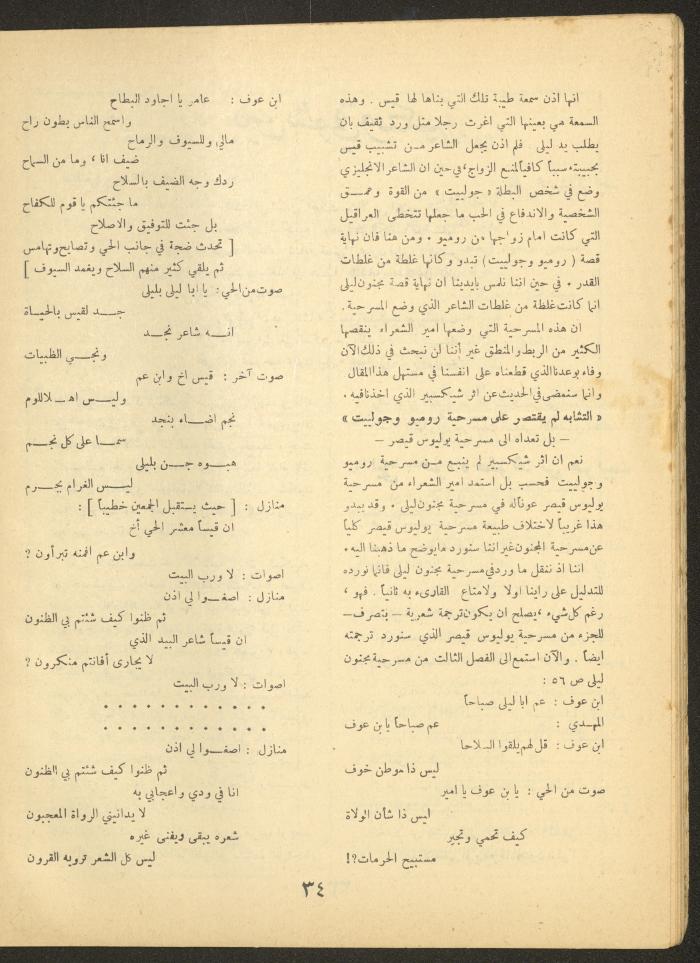 انها اذن سمعة طيبة تلك التي بناها لها قيس . وهذه
السمعة هي بعينها التي اغرت رجلا مثل ورد ثقيف بان
يطلب يد ليلى . فلم اذن يجعل الشاعر من تشبيب قيس
بحبيبته سبباً كافياً لمنع الزواج، في حين ان الشاعر الانجليزي
وضع في شخص البطلة « جولييت » من القوة وعمق
الشخصية والاندفاع في الحب ما جعلها تتخطى العراقيل
التي كانت امام زواجها من روميو . ومن هنا فان نهاية
قصة ( روميو وجولييت ) تبدو وكانها غلطة من غلطات
القدر . في حين اننا نلمس بايدينا ان نهاية قصة مجنون ليلى
انما كانت غلطة من غلطات الشاعر الذي وضع المسرحية .
ان هذه المسرحية التي وضعها امير الشعراء ينقصها
الكثير من الربط والمنطق غير أننا لن نبحث في ذلك الآن
وفاء بوعدنا الذي قطعناه على انفسنا في مستهل هذا المقال
وانما سنمضي في الحديث عن اثر شيكسبير الذي اخذنا فيه .
« التشابه لم يقتصر على مسرحية روميو وجولييت »
— بل تعداه الى مسرحية يوليوس قيصر —
نعم ان اثر شيكسبير لم ينبع من مسرحية روميو
وجولييت فحسب بل استمد امير الشعراء من مسرحية
يوليوس قيصر عوناً له في مسرحية مجنون ليلى . وقد يبدو
هذا غريباً لاختلاف طبيعة مسرحية يوليوس قيصر كلياً
عن مسرحية المجنون غير اننا سنورد ما يوضح ما ذهبنا اليه .
اننا اذ ننقل ما ورد في مسرحية مجنون ليلى فانما نورده
للتدليل على راينا اولا ولامتاع القارىء به ثانياً . فهو ،
رغم كل شيء ، يصلح ان يكون ترجمة شعرية — بتصرف —
للجزء من مسرحية يوليوس قيصر الذي سنورد ترجمته
ايضاً . والآن استمع الى الفصل الثالث من مسرحية مجنون
ليلى ص ٥٦ :
ابن عوف : عم ابا ليلى صباحاً
المهدي : عم صباحاً يا بن عوف
ابن عوف : قل لهم يلقوا السلاحا
ليس ذا موطن خوف
صوت من الحي : يا بن عوف يا امير
ليس ذا شأن الولاة
كيف تحمي وتجير
مستبيح الحرمات؟!
ابن عوف : عامر يا اجاود البطاح
واسمح الناس بطون راح
مالي وللسيوف والرماح
ضيف انا ، وما من السماح
ردك وجه الضيف بالسلاح
ما جئتكم يا قوم للكفاح
بل جئت للتوفيق والاصلاح
[ تحدث ضجة في جانب الحي وتصايح وتهامس
ثم يلقي كثير منهم السلاح ويغمد السيوف ]
صوت من الحي : يا ابا ليلى بليلى
جد لقيس بالحياة
انه شاعر نجد
ونجي الظبيات
صوت آخر : قيس اخ وابن عم
وليس اهلا للوم
نجم اضاء بنجد
سما على كل نجم
هبوه جن بليلى
ليس الغرام بجرم
منازل : [ حيث يستقبل الجمعين خطيباً ] :
ان قيساً معشر الحي أخ
وابن عم افمنه تبرأون ؟
اصوات : لا ورب البيت
منازل : اصغوا لي اذن
ثم ظنوا كيف شئتم بي الظنون
ان قيساً شاعر البيد الذي
لا يجارى أفانتم منكرون ؟
اصوات : لا ورب البيت
. . . . . . . . . . .
. . . . . . . . . . .
منازل : اصغوا لي اذن
ثم ظنوا كيف شئتم بي الظنون
انا في ودي واعجابي به
لا يدانيني الرواة المعجبون
شعره يبقى ويفنى غيره
ليس كل الشعر ترويه القرون
٣٤